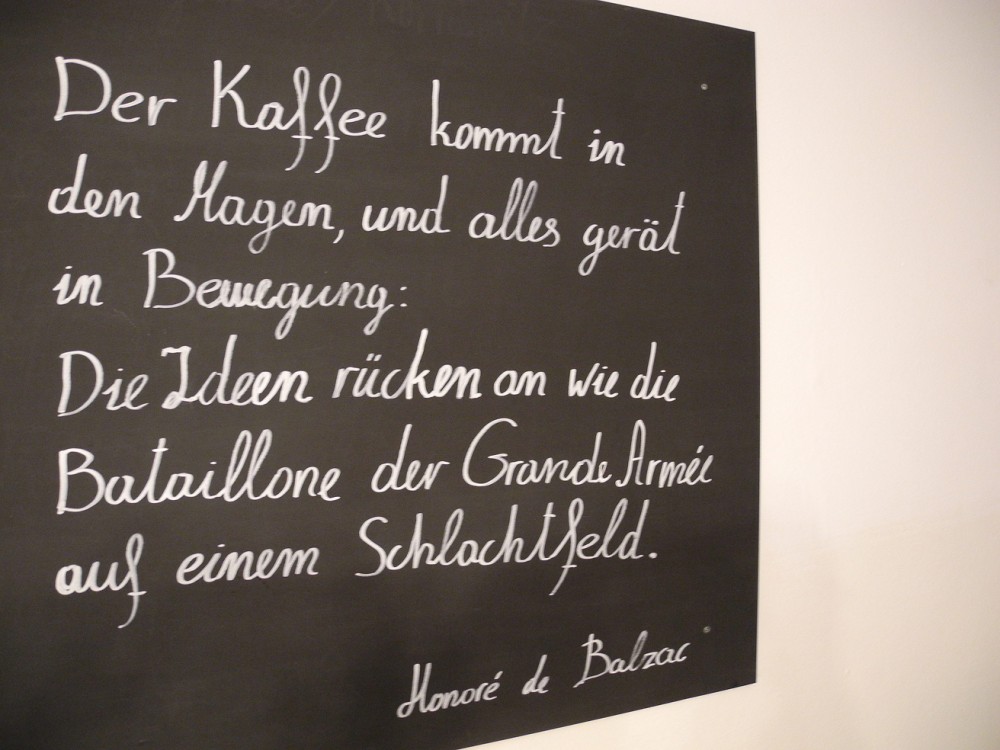 Der Kaffee kommt in
den Magen, und alles gerät
in Bewegung:
Die Ideen rücken an wie die
Bataillone der Grande Armée
auf einem Schlachtfeld.
Honoré de Balzac